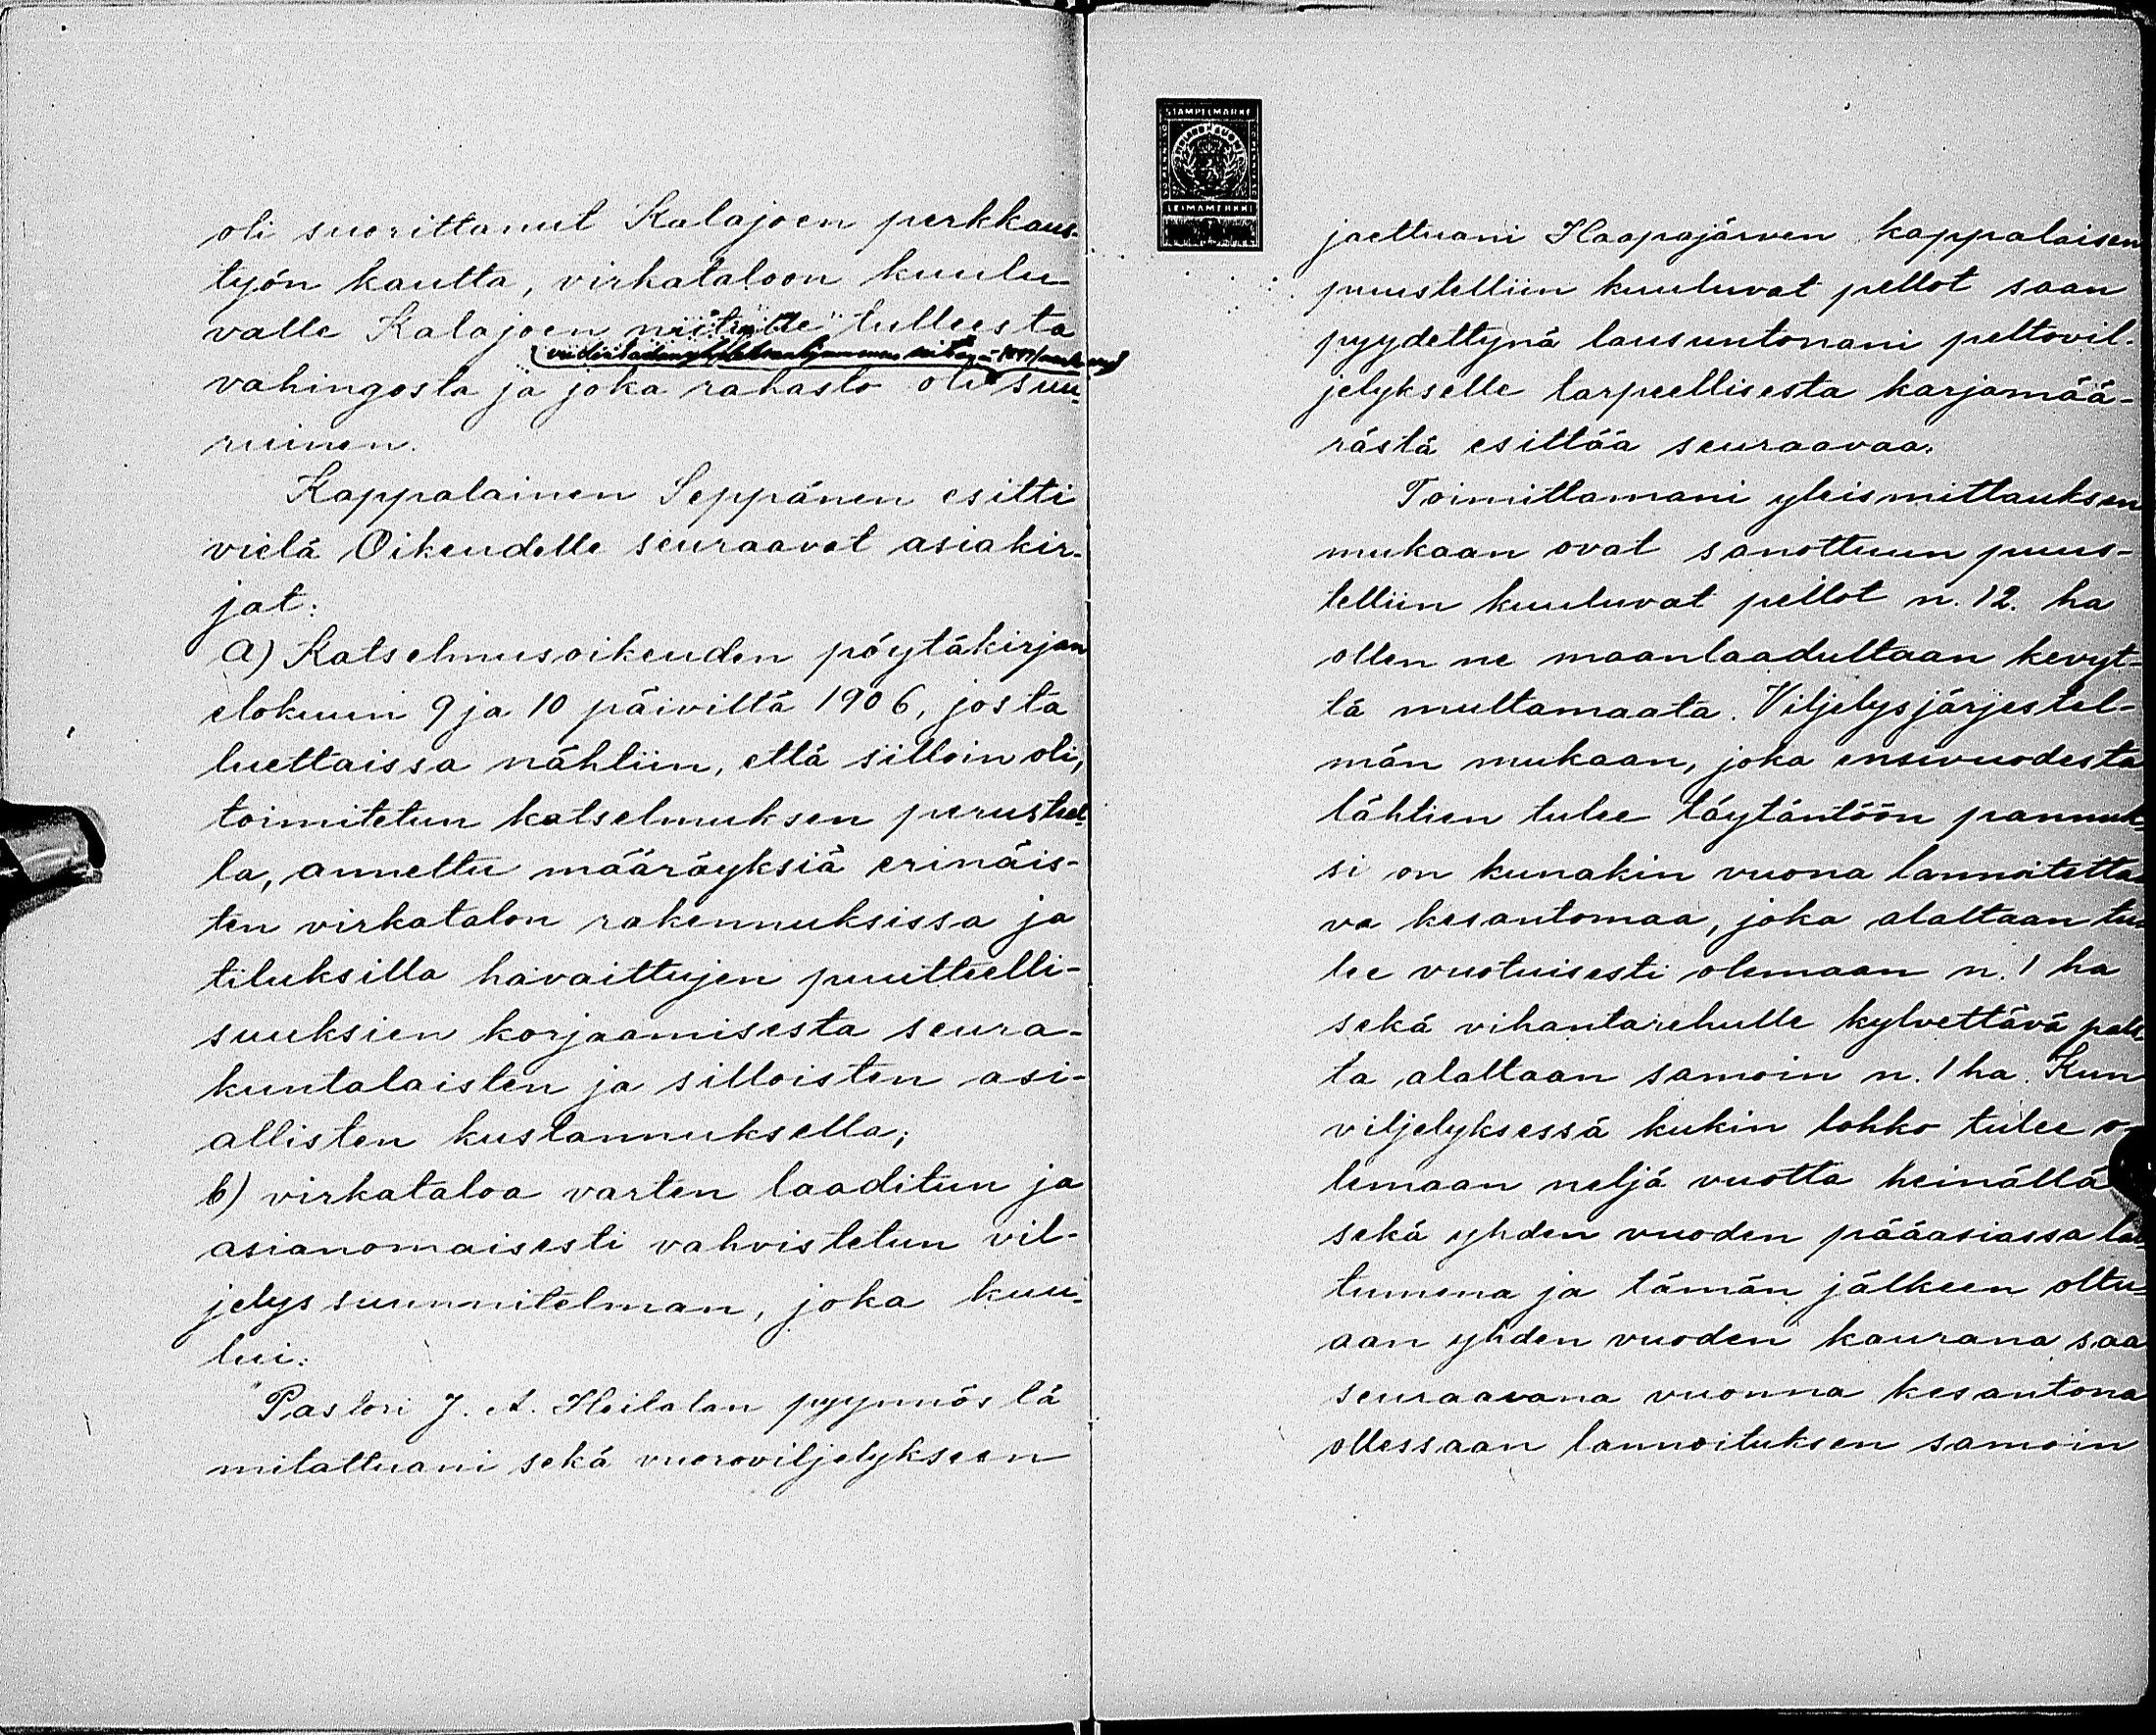 oli suorittanut Kalajoen perkkaus-
työn kautta, virkataloon kuulu-
valle Kalajoen niitulle tulleesta
vahingosta ja joka rahasto oli suu-
ruinen.
Kappalainen Seppänen esitti
vielä Oikeudelle seuraavat asiakir-
jat:
a) Katselmusoikeuden pöytäkirjan
elokuun 9 ja 10 päiviltä 1906, josta
luettaissa nähtiin, että silloin oli,
toimitetun katselmuksen perusteel-
la, annettu määräyksiä erinäis-
ten virkatalon rakennuksissa ja
tiluksilla havaittujen puutteelli-
suuksien korjaamisesta seura-
kuntalaisten ja silloisten asi-
allisten kustannuksella;
b) virkataloa varten laaditun ja
asianomaisesti vahvistetun vil-
jelyssuunnitelman, joka kuu-
lui:
"Pastori J. A. Heilalan pyynnöstä
mitattuani sekä vuoroviljelykseen
STÄMPELMÄRKE
LEIMAMERKKI
jaettuani Haapajärven kappalaisen
puustelliin kuuluvat pellot saan
pyydettynä lausuntonani peltovil-
jelykselle tarpeellisesta karjamää-
rästä esittää seuraavaa.
Toimittamani yleismittauksen
mukaan ovat sanottuun puus-
telliin kuuluvat pellot n. 12. ha
ollen ne maanlaadultaan kevyt-
tä multamaata. Viljelysjärjestel-
män mukaan, joka ensivuodesta
lähtien tulee täytäntöön pannuk-
si on kunakin vuona lannoitetta-
va kesantomaa, joka alaltaan tu-
lee vuotuisesti olemaan n. 1 ha
sekä vihantarehulle kylvettävä pals-
ta alaltaan samoin n. 1 ha. Kun
viljelyksessä kukin lohko tulee o-
lemaan neljä vuotta heinällä
sekä yhden vuoden pääasiassa lai-
tumena ja tämän jälkeen oltu-
aan yhden vuoden kaurana saa
seuraavana vuonna kesantona
ollessaan lannoituksen samoin